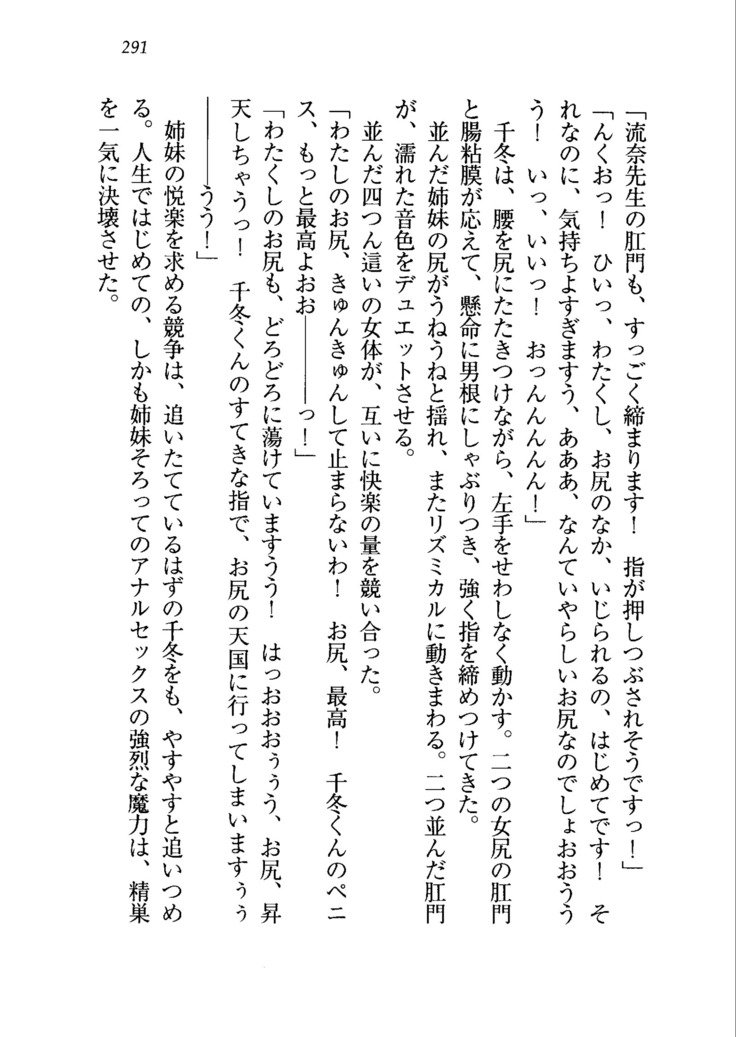 291
「流奈先生の肛門も、すっごく締まります！　指が押しつぶされそうですっ！」
「んくおっ！　ひいっ、わたくし、お尻のなか、いじられるの、はじめてです！　そ
れなのに、気持ちよすぎますう、あああ、なんていやらしいお尻なのでしょおおうう
う！　いっ、いいっ！　おっんんんん！」
　千冬は、腰を尻にたたきつけながら、左手をせわしなく動かす。二つの女尻の肛門
と腸粘膜が応えて、懸命に男根にしゃぶりつき、強く指を締めつけてきた。
　並んだ姉妹の尻がうねうねと揺れ、またリズミカルに動きまわる。二つ並んだ肛門
が、濡れた音色をデュエットさせる。
　並んだ四つん這いの女体が、互いに快楽の量を競い合った。
「わたしのお尻、きゅんきゅんして止まらないわ！　お尻、最高！　千冬くんのペニ
ス、もっと最高よおお――――っ！」
「わたくしのお尻も、どろどろに蕩けていますうう！　はっおおおぅぅう、お尻、昇
天しちゃうっ！　千冬くんのすてきな指で、お尻の天国に行ってしまいますぅぅ
――――うう！」
　姉妹の悦楽を求める競争は、追いたてているはずの千冬をも、やすやすと追いつめ
る。人生ではじめての、しかも姉妹そろってのアナルセックスの強烈な魔力は、精巣
を一気に決壊させた。